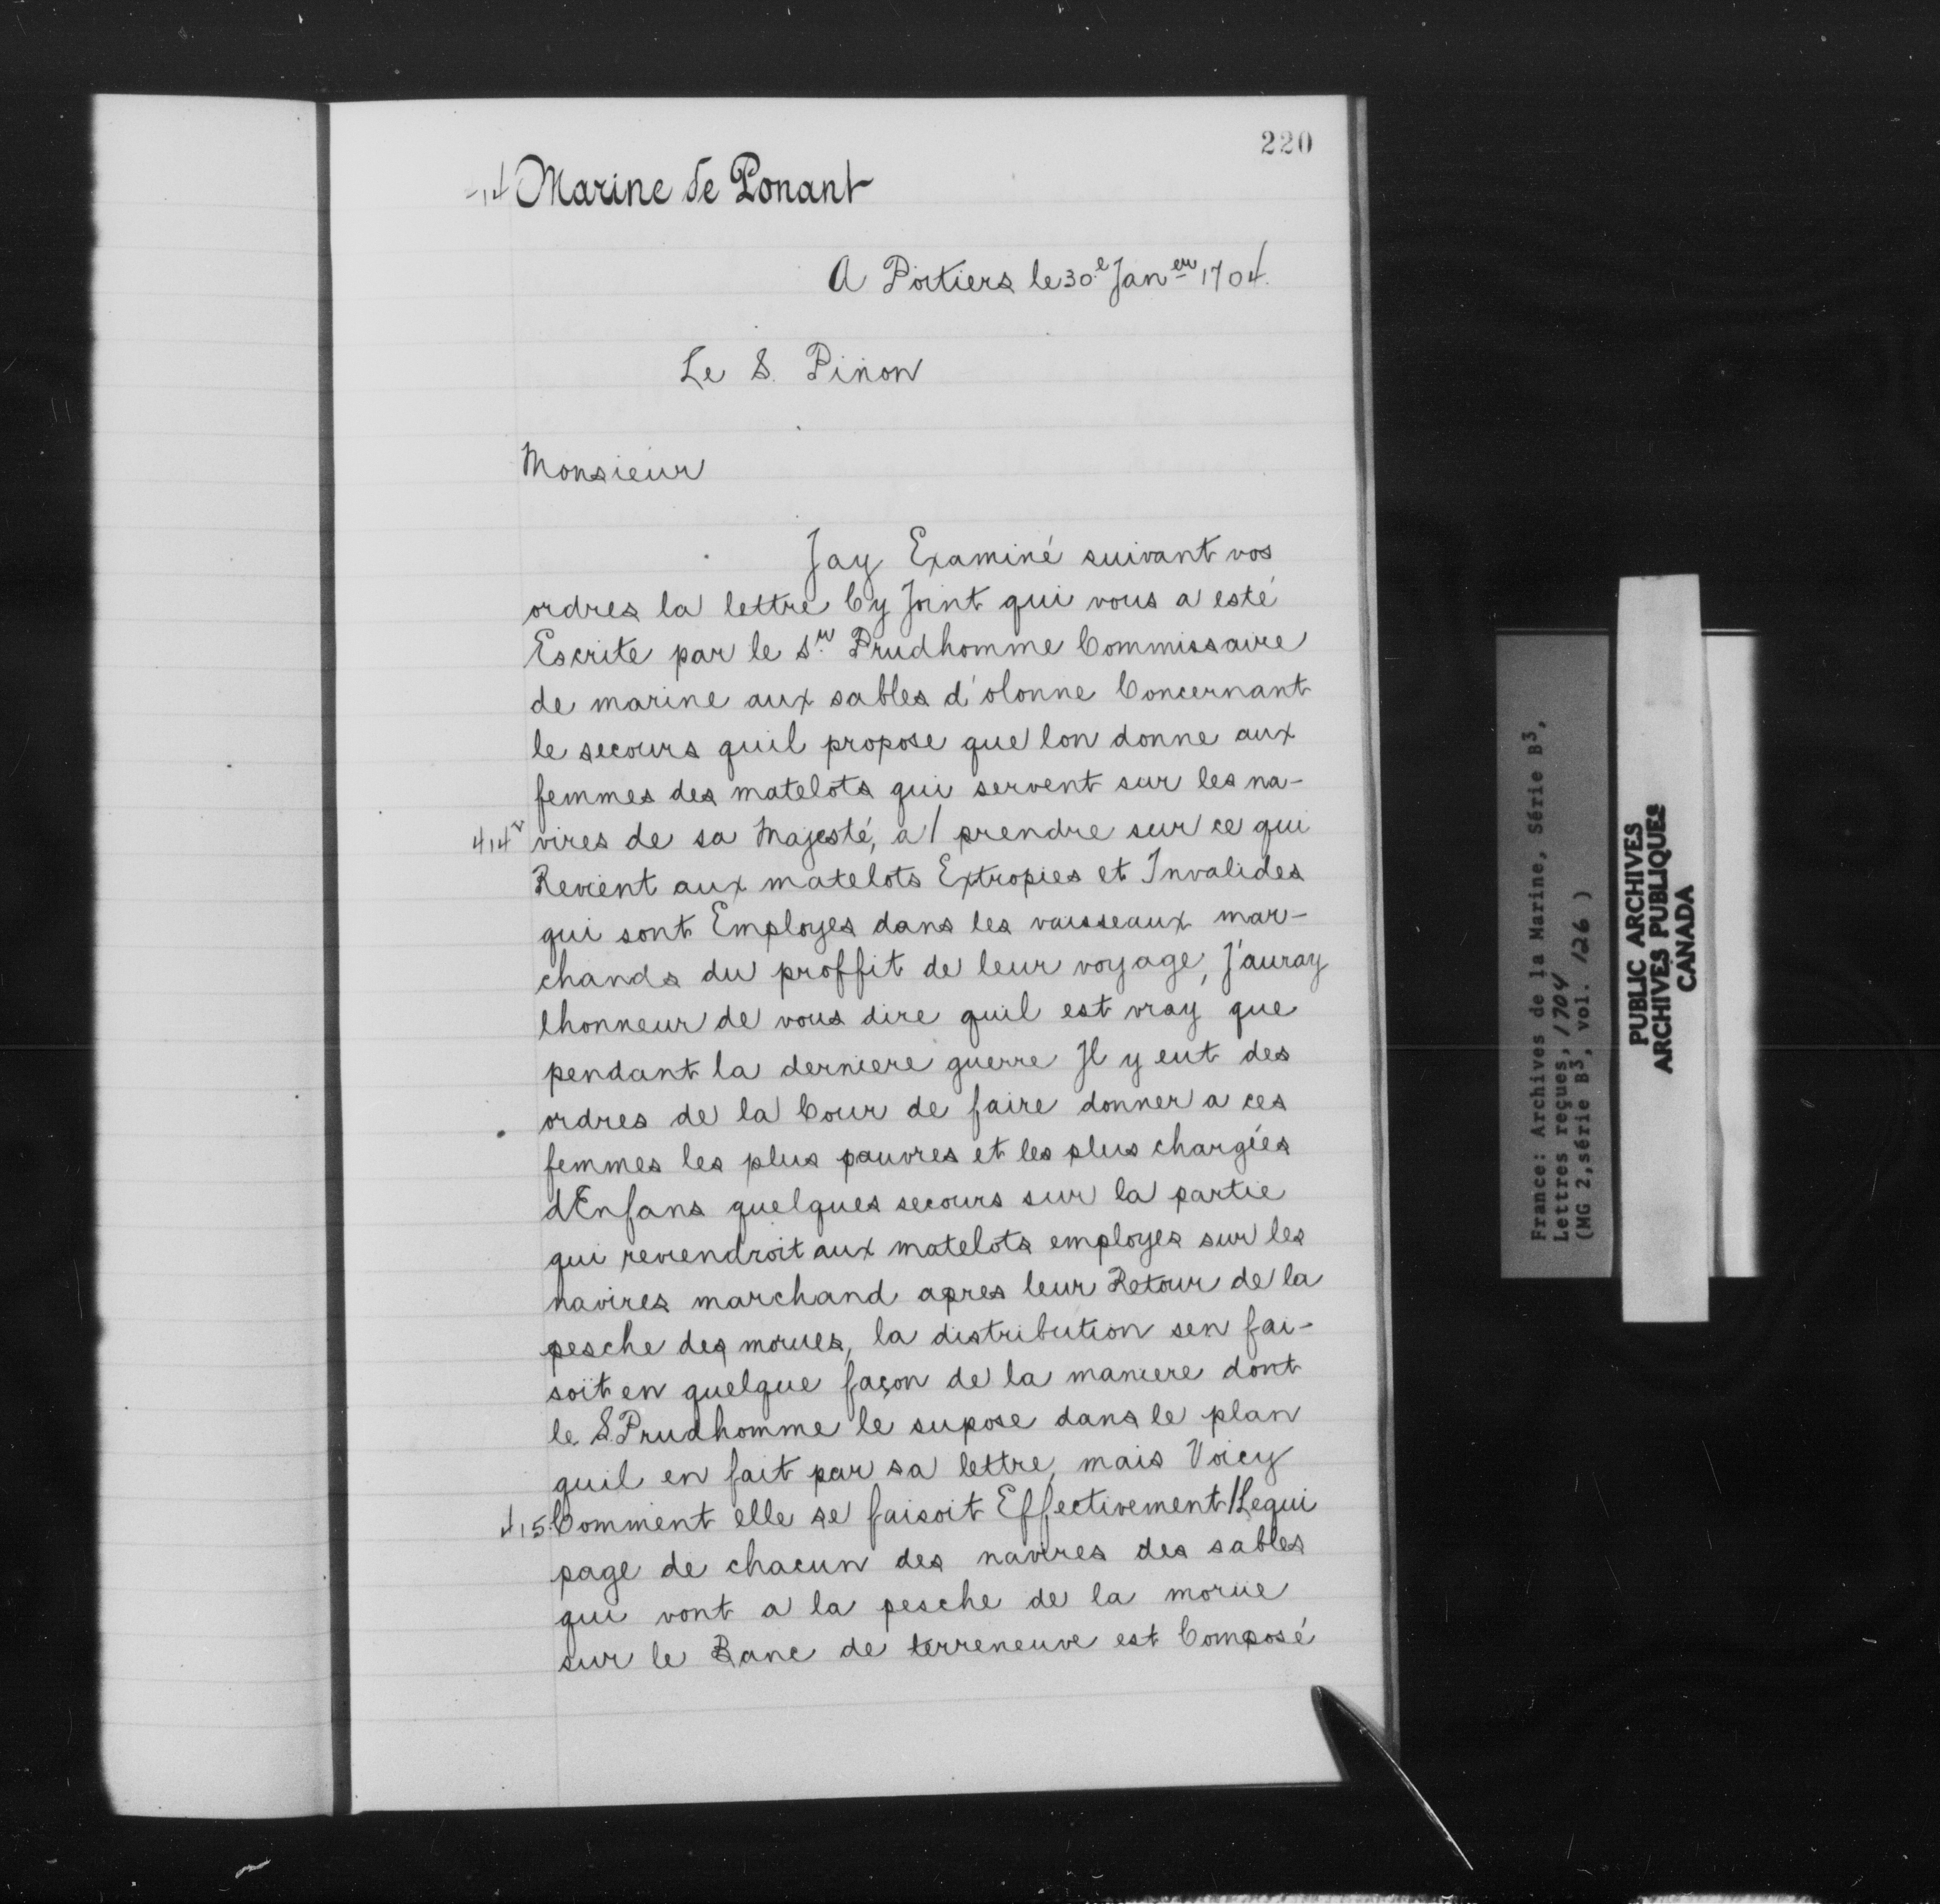 220
Marine de Ponant
A Poitiers le 30e Janer 1704.
Le S. Pinon
Monsieur
Jay Examiné suivant vos
ordres la lettre Cy Joint qui vous a esté
Escrite par le Sr. Prudhomme Commissaire
de marine aux sables d'olonne Concernant
le secours quil propose que lon donne aux
femmes des matelots qui servent sur les na-
414v vires de sa Majesté, a / prendre sur ce qui
Revient aux matelots Extropies et Invalides
qui sont Employes dans les vaisseaux mar-
chands du proffit de leur voyage, J'auray
lhonneur de vous dire quil est vray que
pendant la derniere guerre Il y eut des
ordres de la Cour de faire donner a ces
femmes les plus pauvres et les plus chargiés
dEnfans quelques secours sur la partie
qui reviendroit aux matelots employes sur les
navires marchand apres leur Retour de la
pesche des morues, la distribution sen fai-
soit en quelque façon de la maniere dont
le S. Prudhomme le supose dans le plan
quil en fait par sa lettre, mais Voicy
415 Comment elle se faisoit Effectivement / Lequi
page de chacun des navires des sables
qui vont a la pesche de la morüe
sur le Banc de terreneuve est Composé
France: Archives de la Marine, Série B3,
Lettres reçues, 1704
(MG 2, série B3, vol. 126 )
PUBLIC ARCHIVES
ARCHIVES PUBLIQUES
CANADA